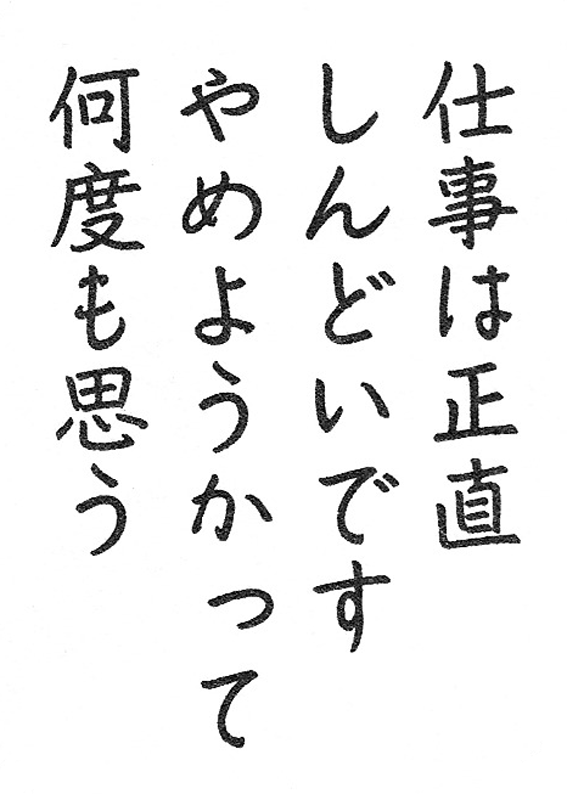 仕事は正直
しんどいです
やめようかって
何度も思う